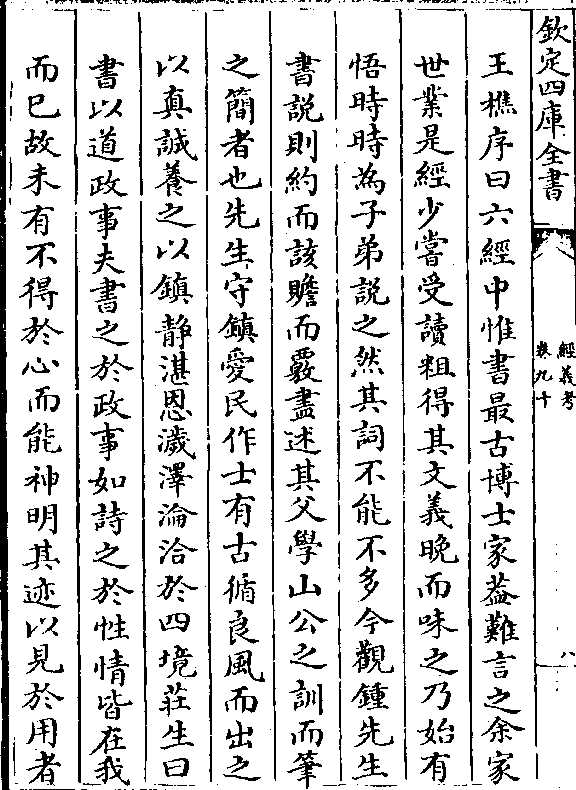 欽定四庫全書
經義考
卷九十
八
王樵序曰六經中惟書最古博士家葢難言之余家
世業是經少嘗受讀粗得其文義晚而味之乃始有
悟時時為子弟説之然其詞不能不多今觀鍾先生
書説則約而該贍而覈盡述其父學山公之訓而筆
之簡者也先生守鎮愛民作士有古循良風而出之
以真誠養之以鎮靜湛恩濊澤淪洽於四境莊生曰
書以道政事夫書之於政事如詩之於性情皆在我
而已故未有不得於心而能神明其迹以見於用者